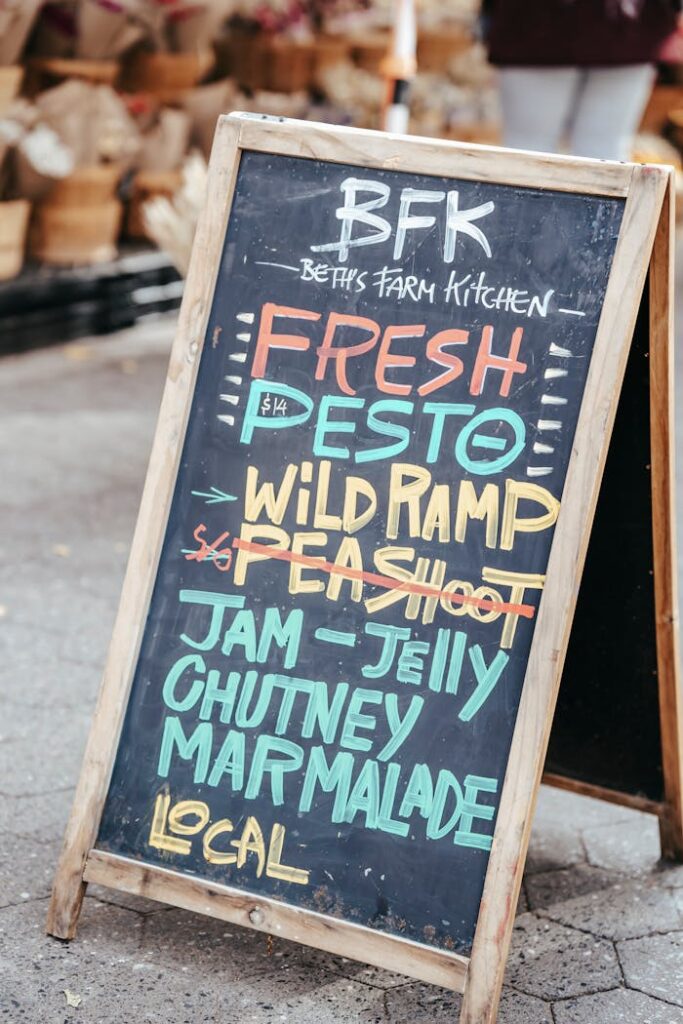 BFK
- BETH'S FARM KITCHEN -
FRESH
PESTO
$14
→ WILD RAMP
S/O PEASHOOT
JAM - JELLY
CHUTNEY
MARMALADE
LOCAL